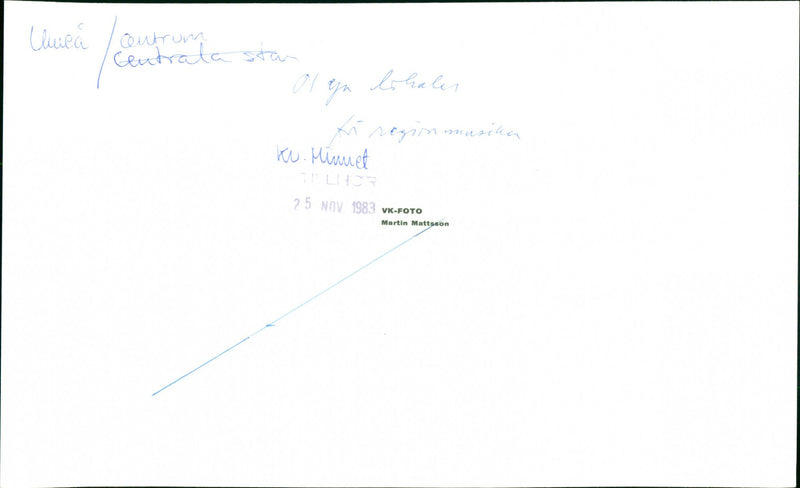 Umeå / centrum
centrala stan
lokaler
för regionmusiken
Kv. Minnet
25 NOV 1983
VK-FOTO
Martin Mattsson